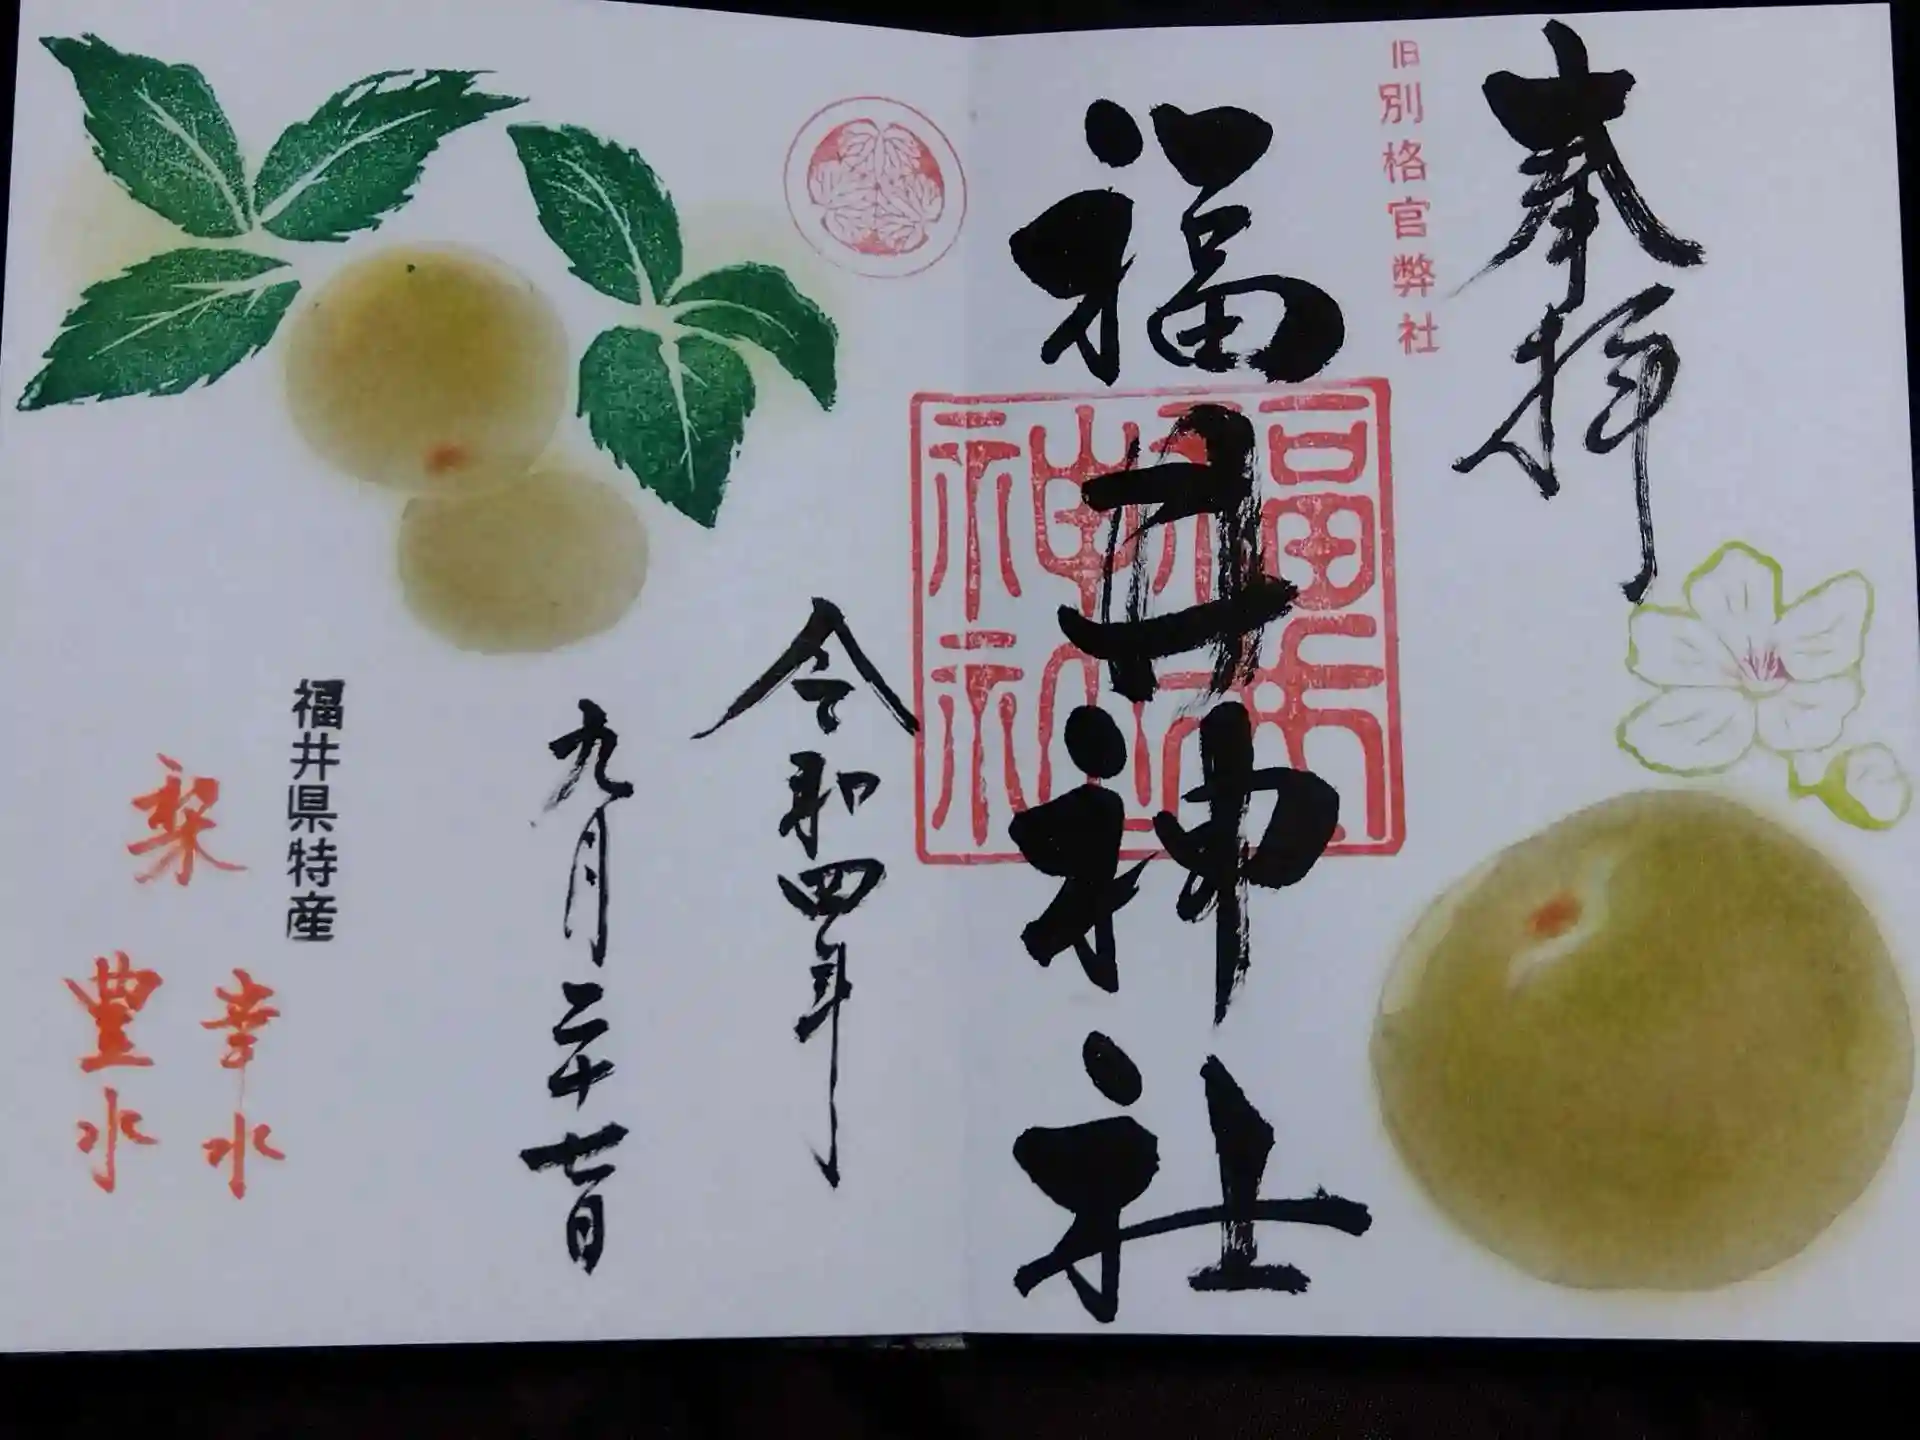 奉拝
旧別格官弊社
福井神社
福井神社
令和四年
九月二十七日
福井県特産
梨
幸水
豊水